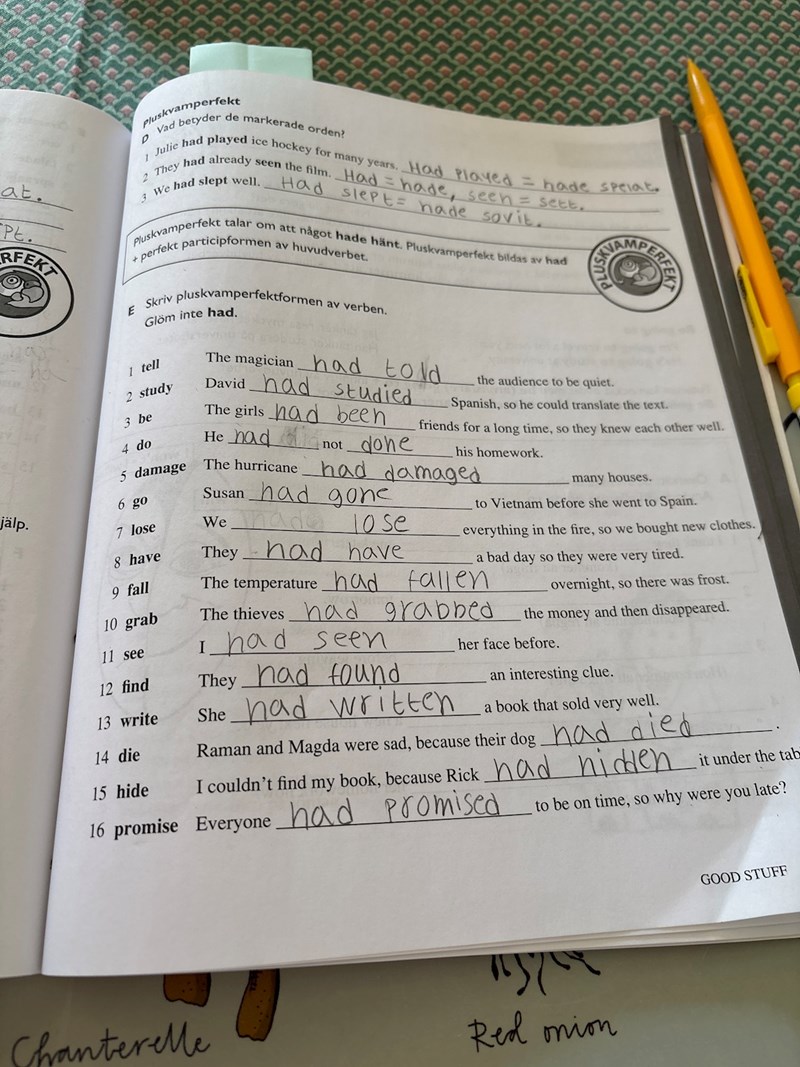 at.
pt.
RFEKT
jälp.
Pluskvamperfekt
D Vad betyder de markerade orden?
1 Julie had played ice hockey for many years. Had played = hade spelat.
2 They had already seen the film. Had = hade, seen = sett.
3 We had slept well. Had slept = hade sovit.
Pluskvamperfekt talar om att något hade hänt. Pluskvamperfekt bildas av had
+ perfekt participformen av huvudverbet.
PLUSKVAMPERFEKT
E Skriv pluskvamperfektformen av verben.
Glöm inte had.
1 tell The magician had told the audience to be quiet.
2 study David had studied Spanish, so he could translate the text.
3 be The girls had been friends for a long time, so they knew each other well.
4 do He had not done his homework.
5 damage The hurricane had damaged many houses.
6 go Susan had gone to Vietnam before she went to Spain.
7 lose We lose everything in the fire, so we bought new clothes.
8 have They had have a bad day so they were very tired.
9 fall The temperature had fallen overnight, so there was frost.
10 grab The thieves had grabbed the money and then disappeared.
11 see I had seen her face before.
12 find They had found an interesting clue.
13 write She had written a book that sold very well.
14 die Raman and Magda were sad, because their dog had died.
15 hide I couldn't find my book, because Rick had hidden it under the tab
16 promise Everyone had promised to be on time, so why were you late?
GOOD STUFF
Chanterelle
Red onion